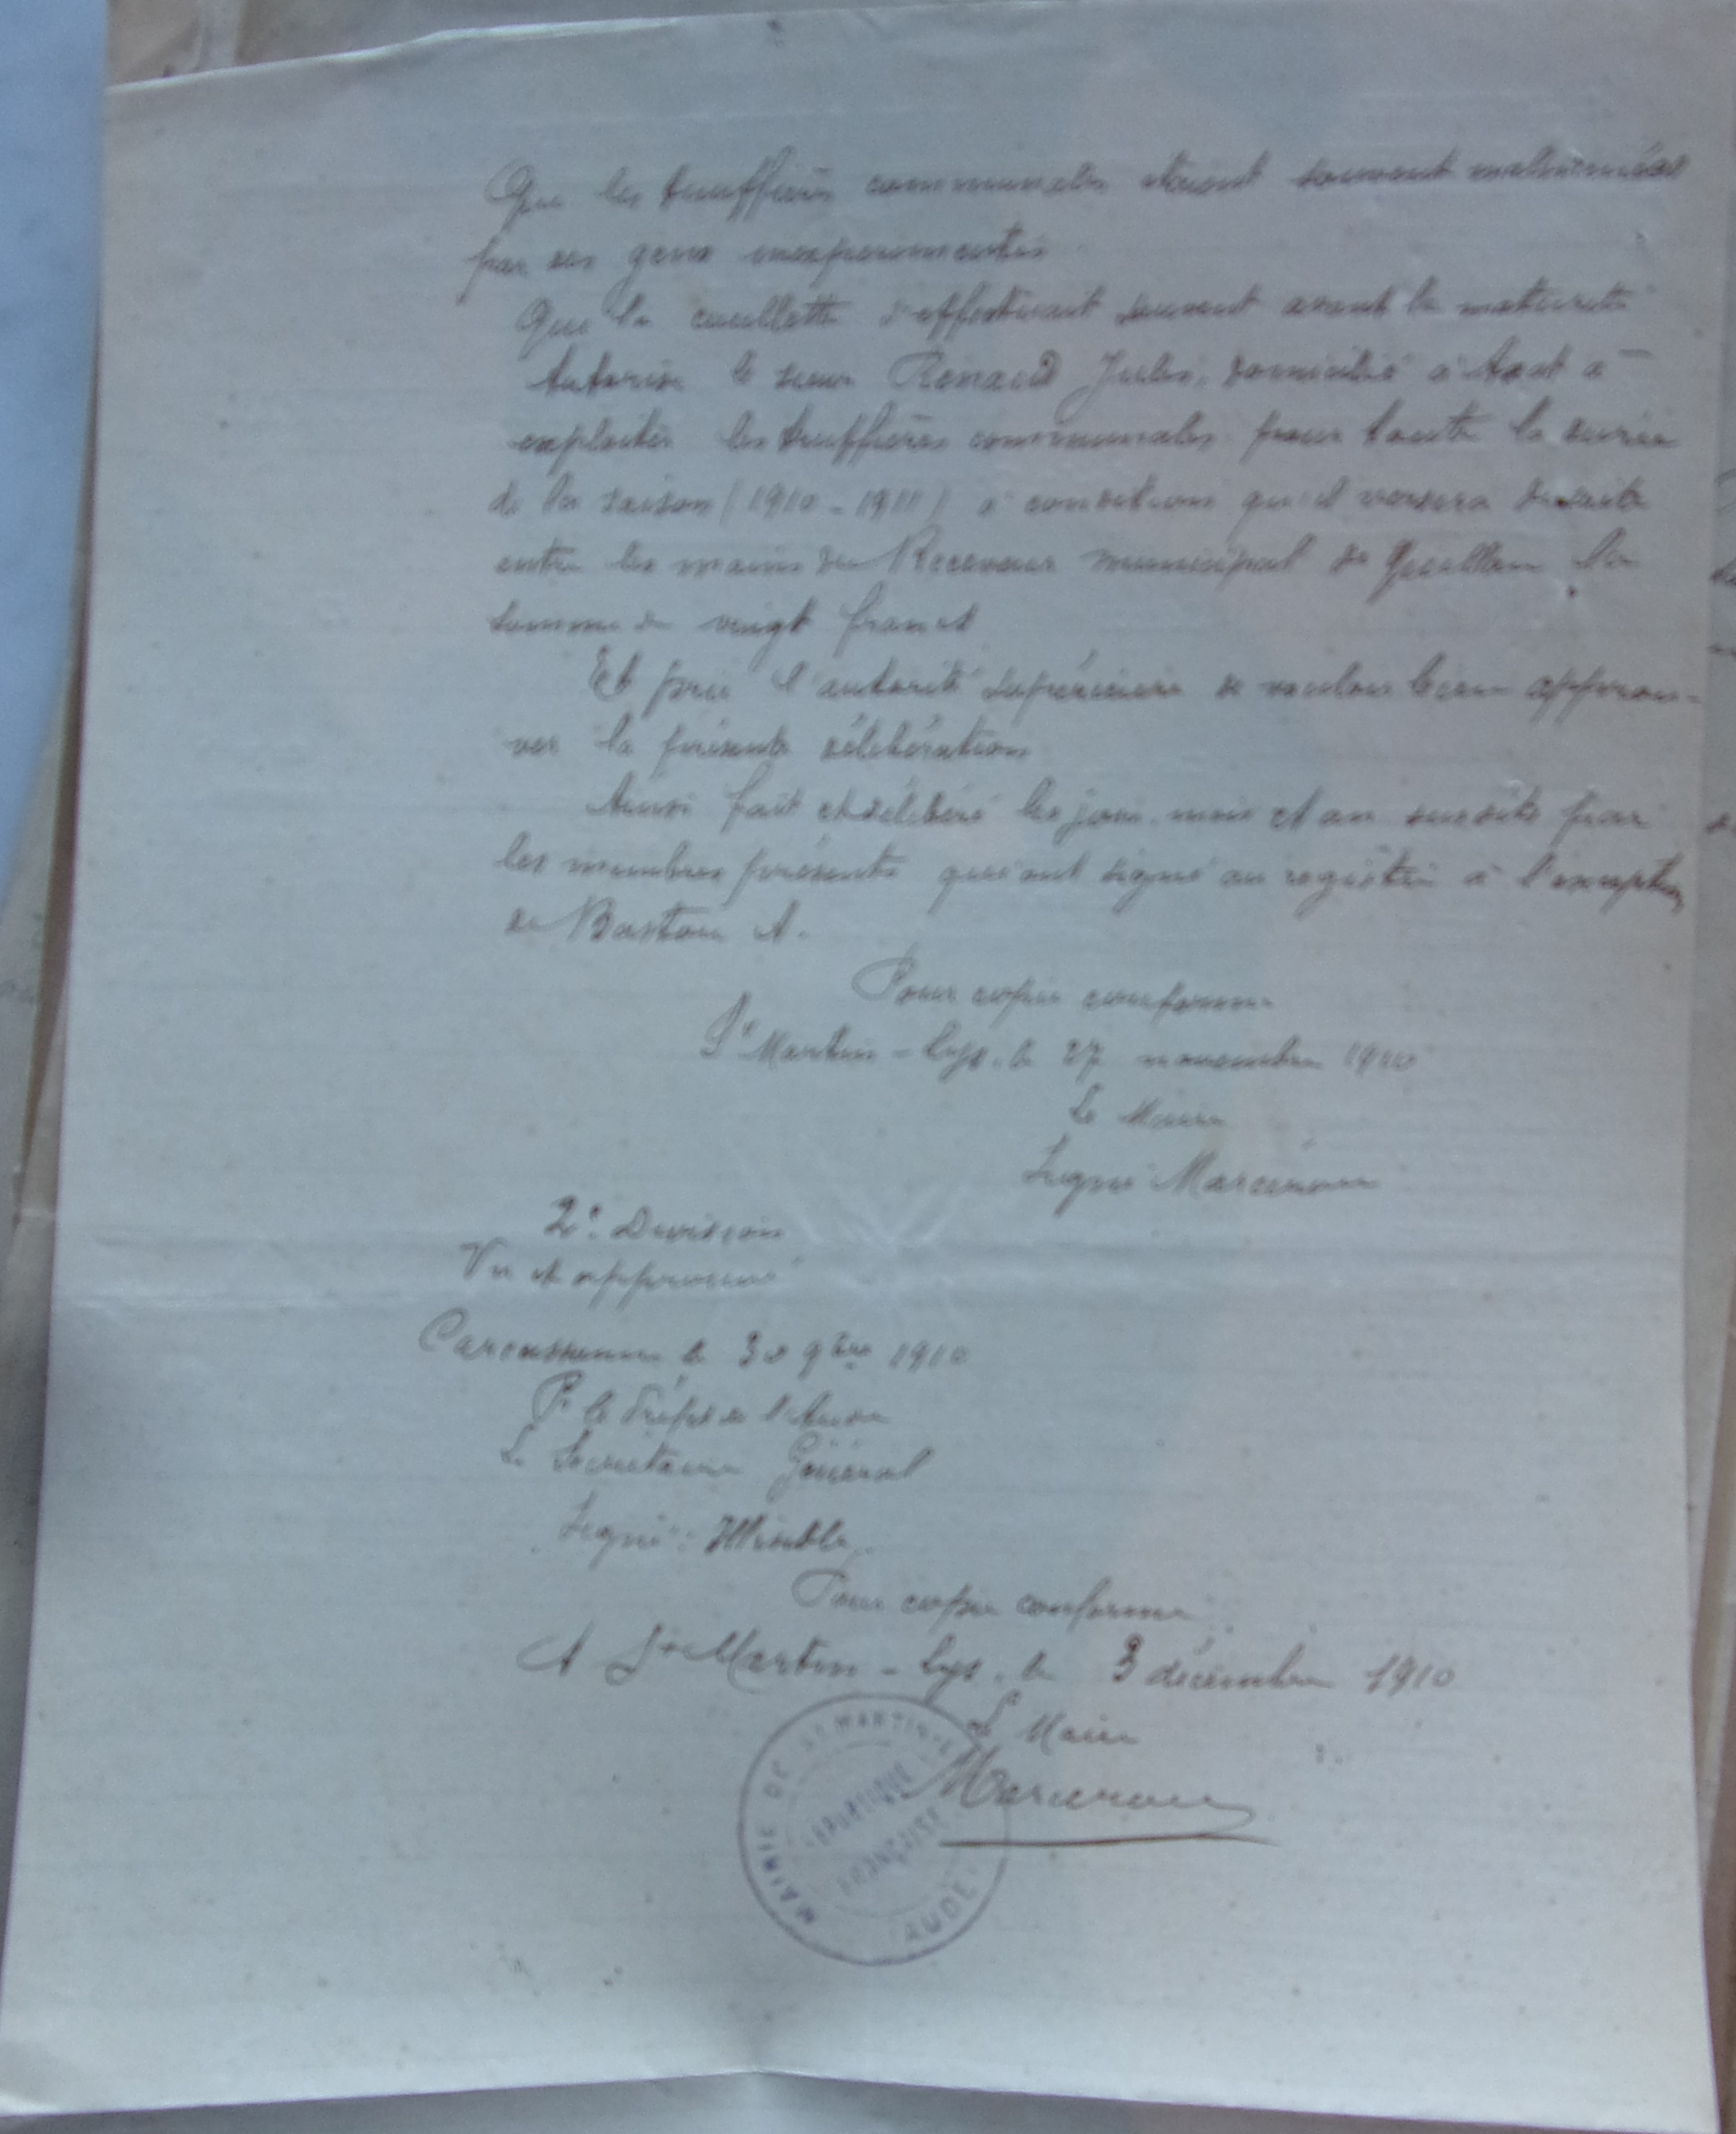 Que les truffières communales étaient souvent malmenées
par des gens inexpérimentés
Que la cueillette s'effectuait souvent avant la maturité
Autorise le sieur Renaud Jules, domicilié à Axat à
exploiter les truffières communales pour toute la durée
de la saison (1910 - 1911) à condition qu'il versera de suite
entre les mains du Receveur municipal de Quillan la
somme de vingt francs
Et prie l'autorité supérieure de vouloir bien approu-
ver la présente délibération
Ainsi fait et délibéré les jour, mois et an susdits par
les membres présents qui ont signé au registre à l'exception
de A.
Pour copie conforme
St Martin-Lys, le 27 novembre 1910
Le Maire
Signé
2e Division
Vu et approuvé
Carcassonne le 30 9bre 1910
Pr le Préfet de l'Aude
Le Secrétaire Général
Signé :
Pour copie conforme
A St Martin-Lys, le 3 décembre 1910
Le Maire
MAIRIE DE ST MARTIN
RÉPUBLIQUE
FRANÇAISE
AUDE